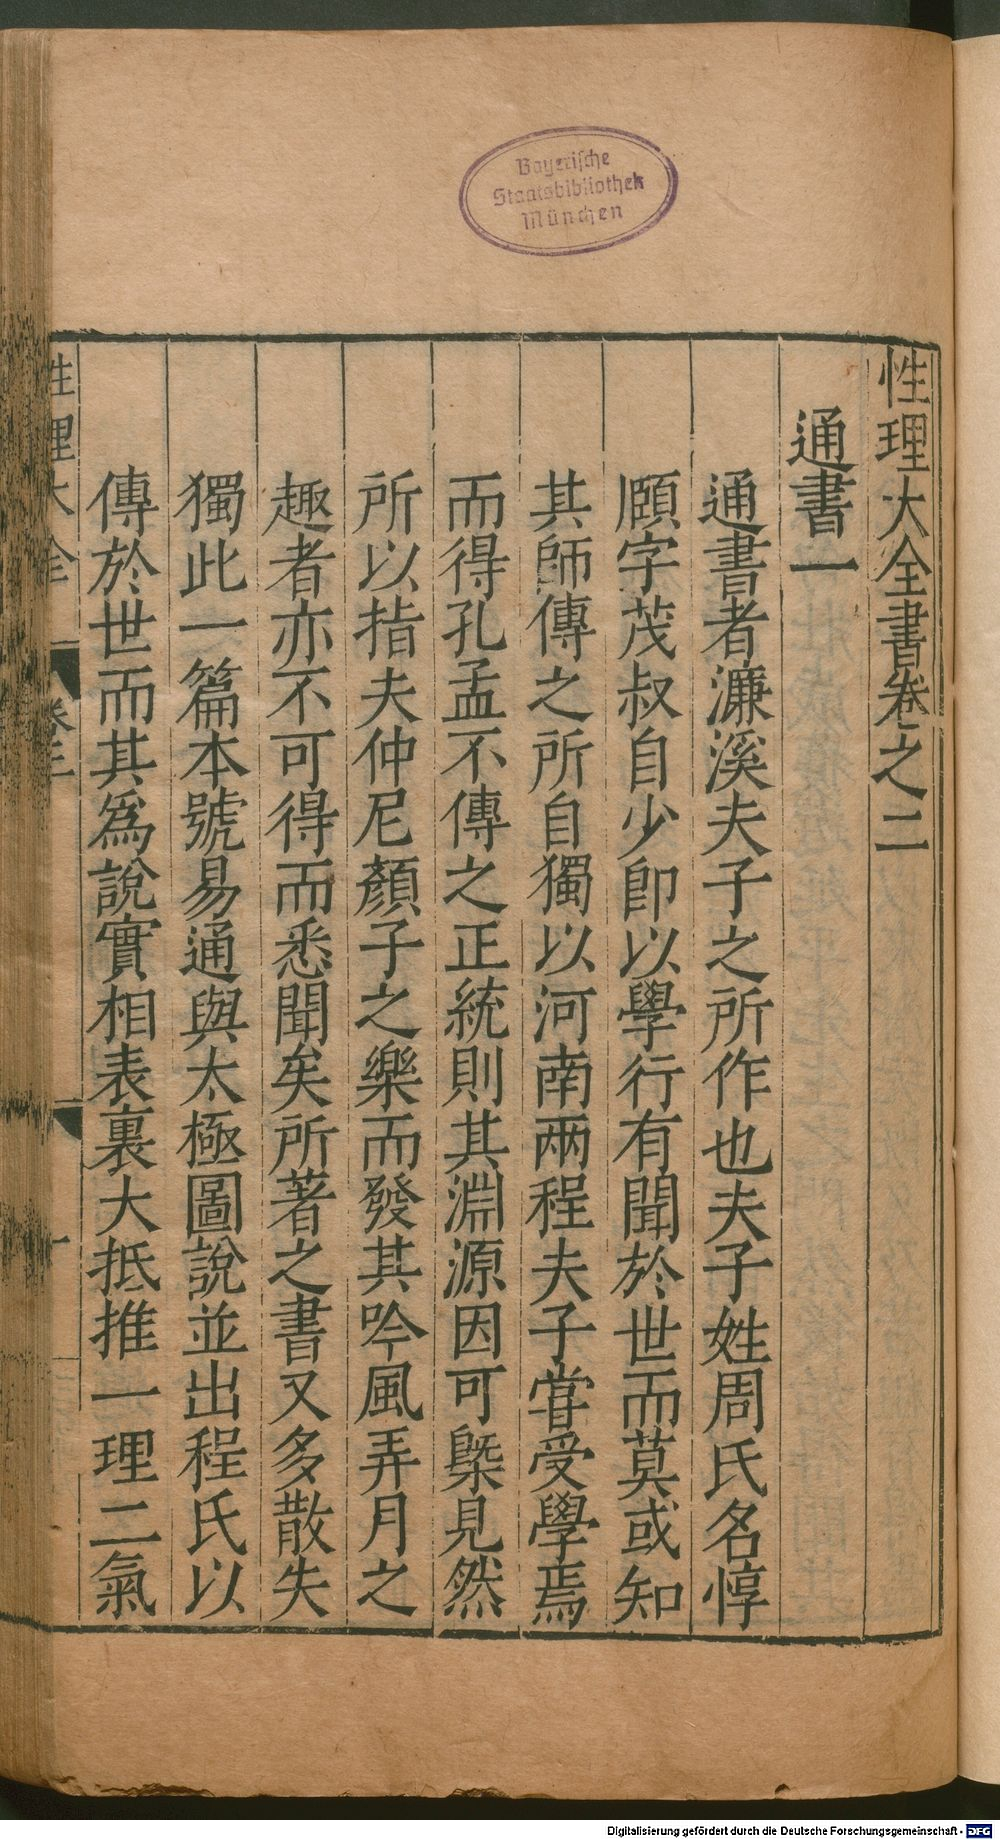 Bayerische
Staatsbibliothek
München
性理大全書卷之二
通書一
通書者濂溪夫子之所作也夫子姓周氏名惇
頤字茂叔自少卽以學行有聞於世而莫或知
其師傳之所自獨以河南兩程夫子甞受學焉
而得孔孟不傳之正統則其淵源因可槩見然
所以指夫仲尼顏子之樂而發其吟風弄月之
趣者亦不可得而悉聞矣所著之書又多散失
獨此一篇本號易通與太極圖說並出程氏以
傳於世而其爲說實相表裏大抵推一理二氣
性理大全 卷二 一
Digitalisierung gefördert durch die Deutsche Forschungsgemeinschaft - DFG